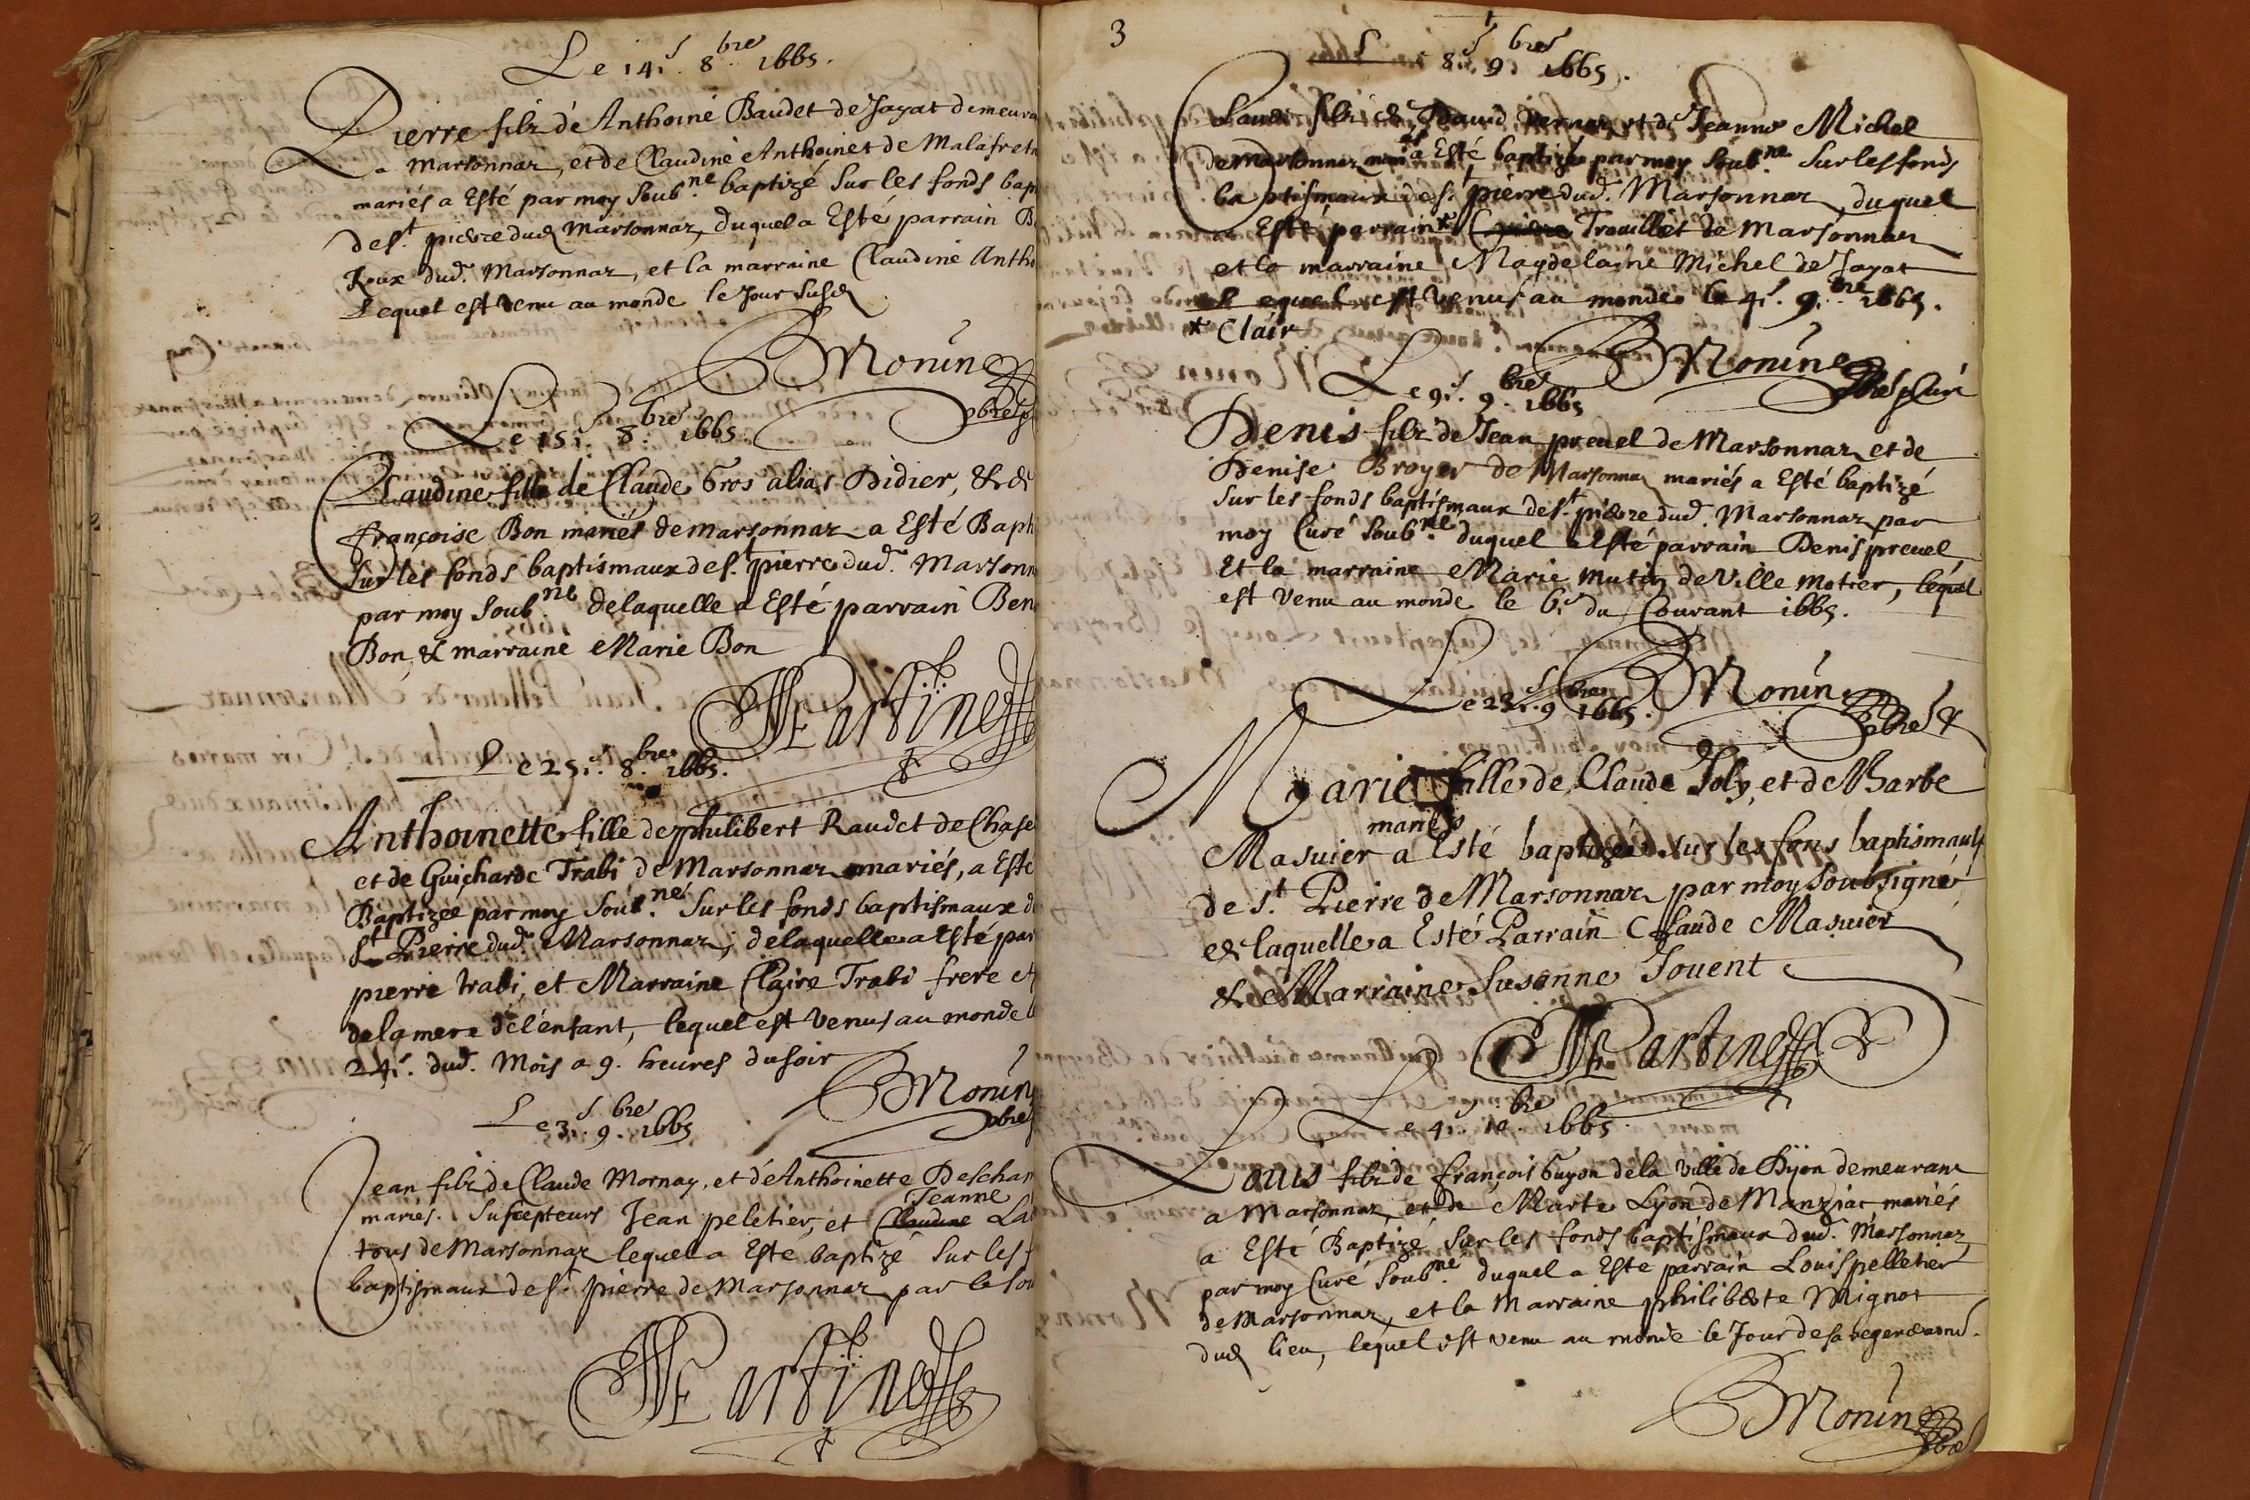 Le 14.e 8.bre 1665.
Pierre filz de Anthoine Baudet de Jayat demeura
a Marsonnaz, et de Claudine Anthoinet de Malafretaz
mariés a Esté par moy Soub.né baptizé Sur les fonds bap
de S.t pierre dud Marsonnaz, duquel a Esté parrain B
Roux dud. Marsonnaz, et la marraine Claudine Antho
Lequel est venu au monde le Jour Susd
Monin
pbre
Le 15.e 8.bre 1665.
Claudine fille de Claude Gros alias Didier, & de
françoise Bon mariés de marsonnaz a Esté Bapt
Sur les fonds baptismaux de S.t pierre dud. Marsonn
par moy Soub.né de laquelle a Esté parrain Ben
Bon, & marraine Marie Bon
Martine
Le 25.e 8.bre 1665.
Anthoinette fille de philibert Raudet de Chase
et de Guicharde Trabi de Marsonnaz mariés, a Esté
Baptizée par moy Soub.né Sur les fonds baptismaux d
S.t Pierre dud. Marsonnaz, de laquelle a Esté par
pierre trabi, et Marraine Claire Trabi frere et
de la mere de l'enfant, lequel est venus au monde l
24.e dud. Mois a 9. heures du soir
Monin
pbre
Le 3.e 9.bre 1665
Jean filz de Claude Mornay, et de Anthoinette Descham
Jeanne
mariés. Suscepteurs Jean peletier, et Claudine La
tous de Marsonnaz lequel a Esté baptizé Sur les f
baptismaux de S.t pierre de Marsonnaz par le Sou
Martine
3
Le 8.e 9.bre 1665.
Claude filz de David Vernay et de Jeanne Michel
de Marsonnaz a Esté baptizé par moy Soub.né Sur les fonds
baptismaux de S.t pierre dud. Marsonnaz, duquel
a Esté parrain * Trouillet de Marsonnaz
et la marraine Magdelaine Michel de Jayat
lequel est venus au monde le 4.e 9.bre 1665.
* Clair
Monin
pbre Curé
Le 9.e 9.bre 1665
Denis filz de Jean preuel de Marsonnaz et de
Denise Broyer de Marsonnaz mariés a Esté baptizé
Sur les fonds baptismaux de S.t pierre dud. Marsonnaz par
moy Curé Soub.né duquel a Esté parrain Denis preuel
Et la marraine Marie mutin de Ville motier, lequel
est Venu au monde le 6.e du Courant 1665.
Monin
pbre
Le 23.e 9.bre 1665.
Marie fille de Claude Joly, et de Barbe
mariés
Masuier a Esté baptizée sur les fons baptismaulx
de S.t Pierre de Marsonnaz par moy Soubsigné
de laquelle a Esté Parrain Claude Masuier
& Marraine Susanne Jouent
Martine
Le 4.e 10.bre 1665.
Louis filz de françois Guyon de la ville de Dijon demeurant
a Marsonnaz, et de Marte Lyon de Manziac mariés
a Esté Baptizé Sur les fonds baptismaux dud. Marsonnaz
par moy Curé Soub.né duquel a Esté parrain Louis pelletier
de Marsonnaz, et la Marraine philiberte Mignot
dud lieu, lequel est venu au monde le Jour de sa regenerãond.
Monin
pbre